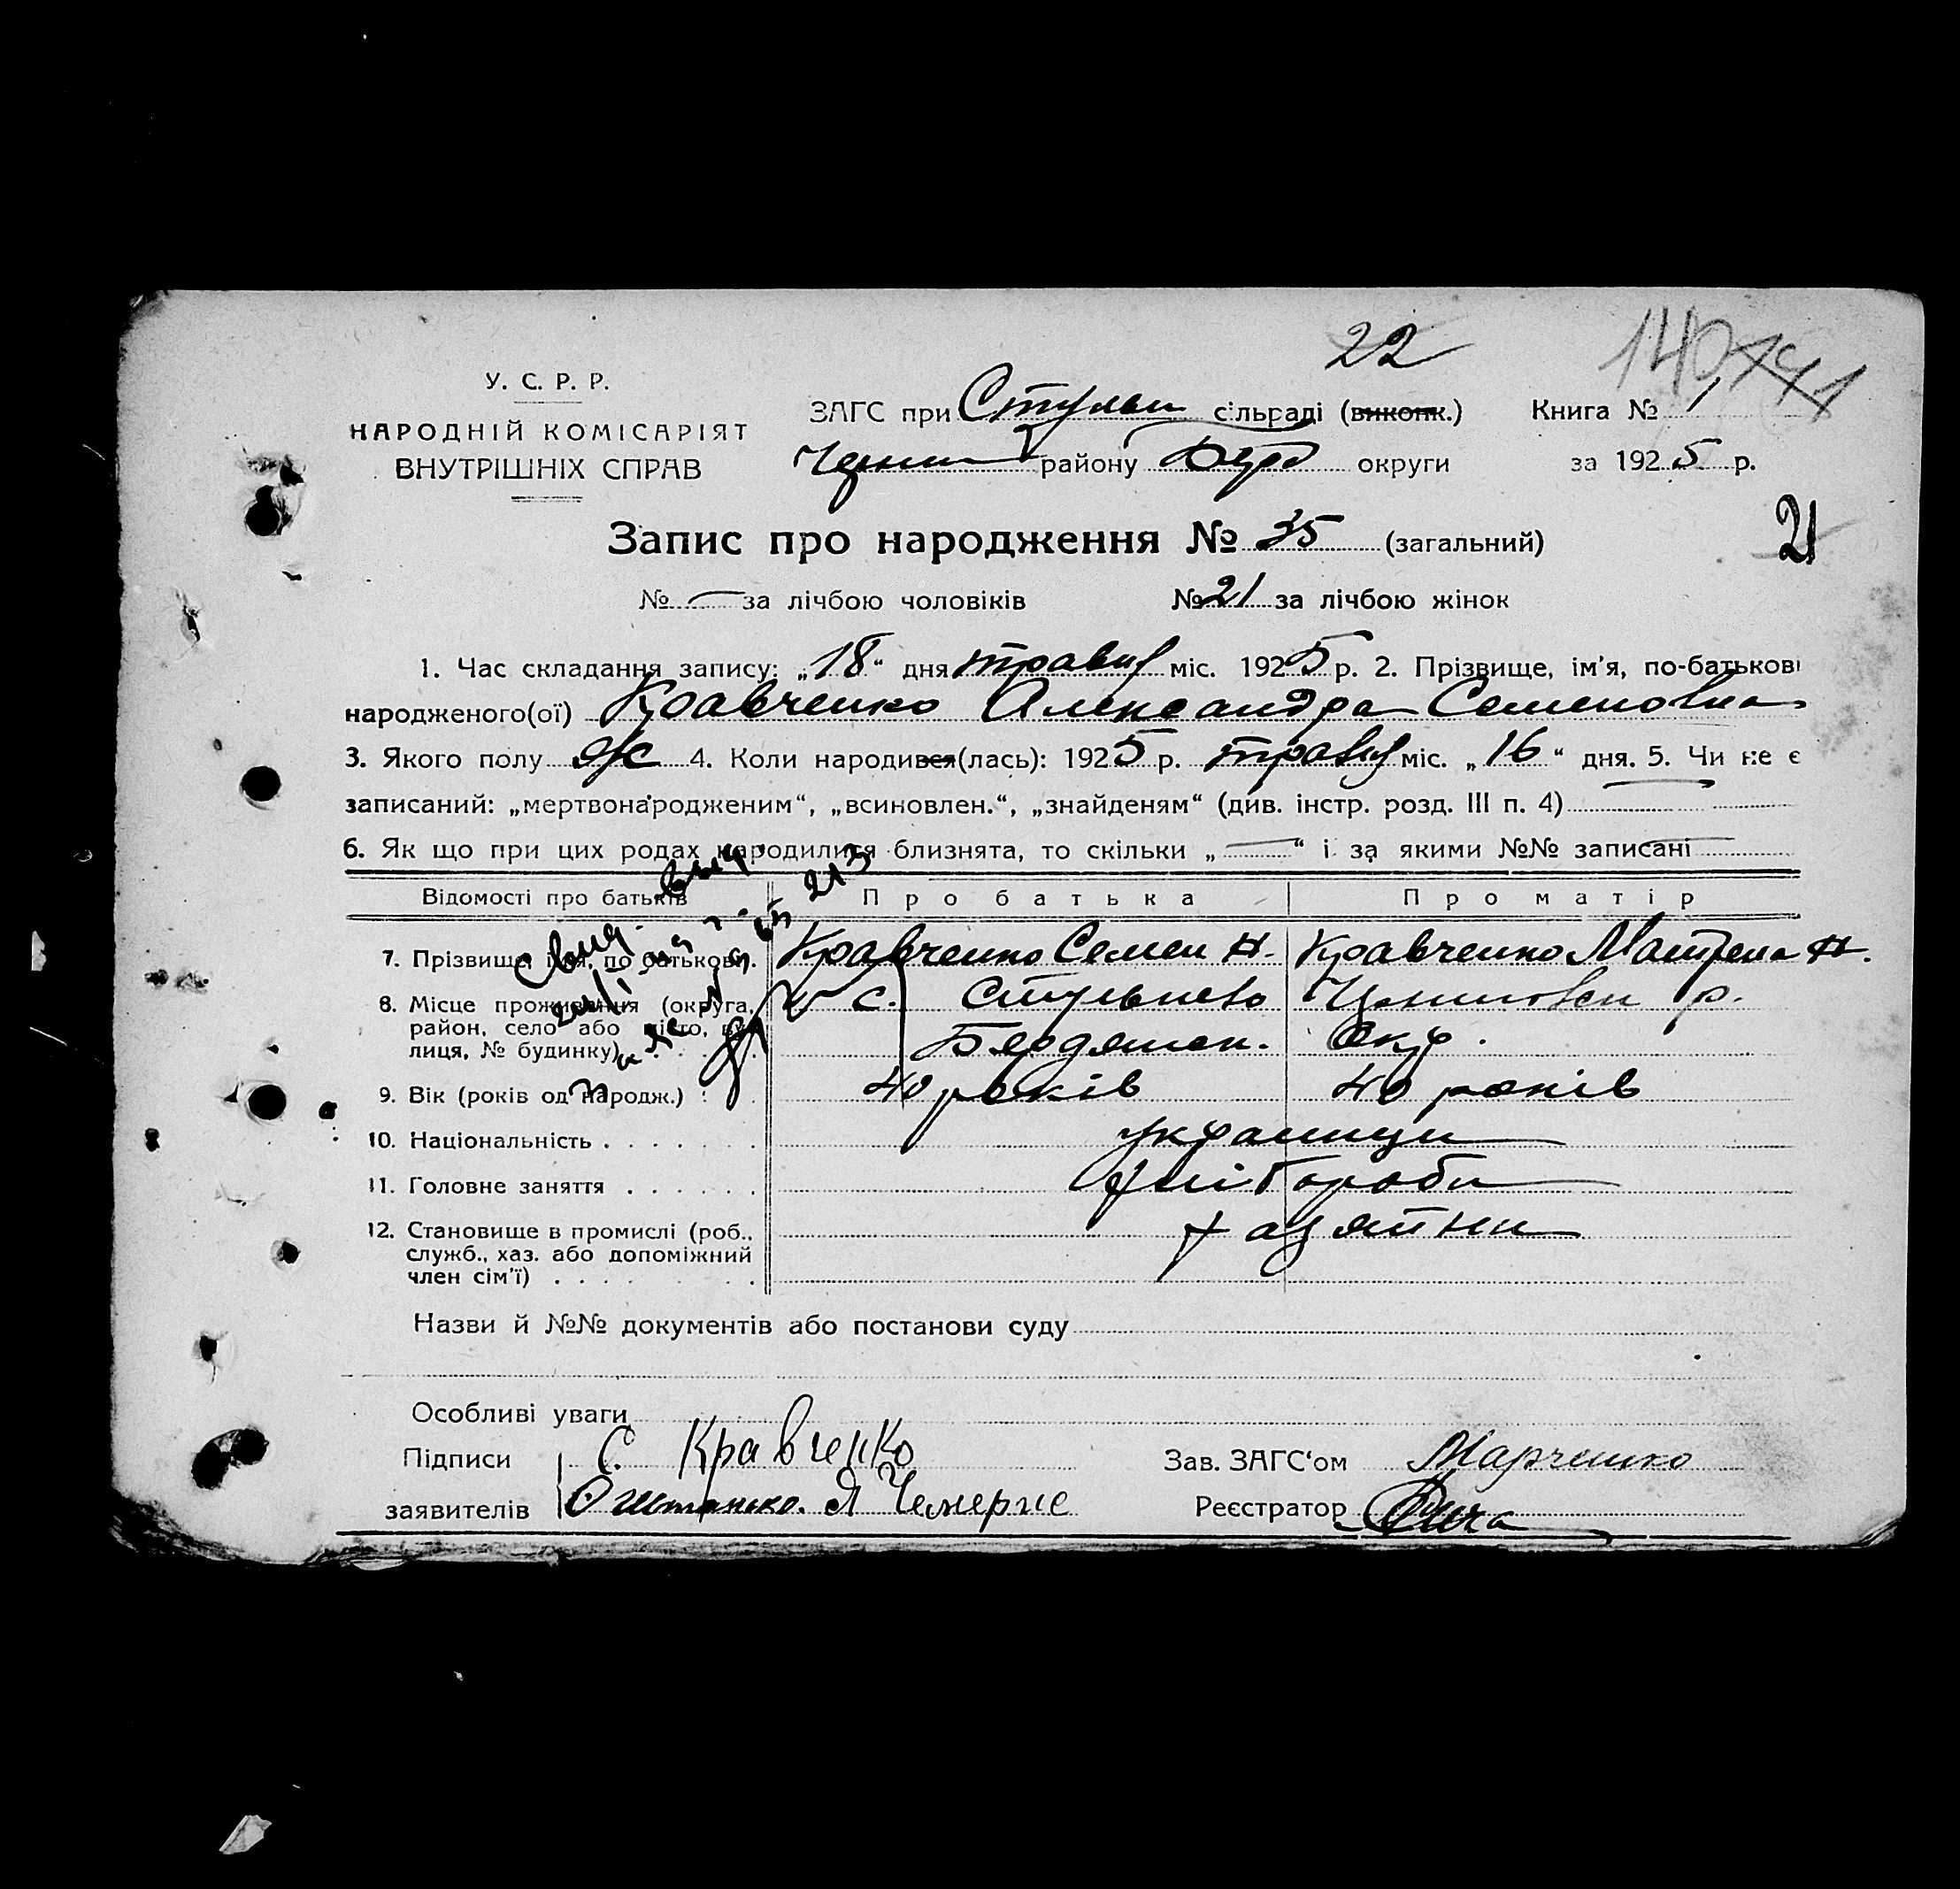 22
140 141
У. С. Р. Р.
НАРОДНІЙ КОМІСАРІЯТ
ВНУТРІШНІХ СПРАВ
ЗАГС при Стульн сільраді (виконк.) Книга № 1
району Берд округи за 1925 р.
21
Запис про народження № 35 (загальний)
№ — за лічбою чоловіків № 21 за лічбою жінок
1. Час складання запису: „18“ дня травня міс. 1925 р. 2. Прізвище, ім’я, по-батькові
народженого(ої) Кравченко Александра Семеновна
3. Якого полу ж 4. Коли народився(лась): 1925 р. травня міс. „16“ дня. 5. Чи не є
записаний: „мертвонародженим“, „всиновлен.“, „знайденям“ (див. інстр. розд. III п. 4) —
6. Як що при цих родах народилися близнята, то скільки „ — “ і за якими №№ записані —
Відомості про батьків Про батька Про матір
7. Прізвище, ім’я, по батькові. Кравченко Семен Н. Кравченко Матрена Н.
8. Місце проживання (округа, с. Стульнево р.
район, село або місто, ву-
лиця, № будинку) Бердянск. Окр.
9. Вік (років од народж.) 40 років 40 років
10. Національність украинци
11. Головне заняття хліборобы
12. Становище в промислі (роб.,
служб., хаз. або допоміжний
член сім’ї)
Назви й №№ документів або постанови суду
Особливі уваги
Підписи С. Кравченко Зав. ЗАГС‘ом Марченко
заявителів Реєстратор